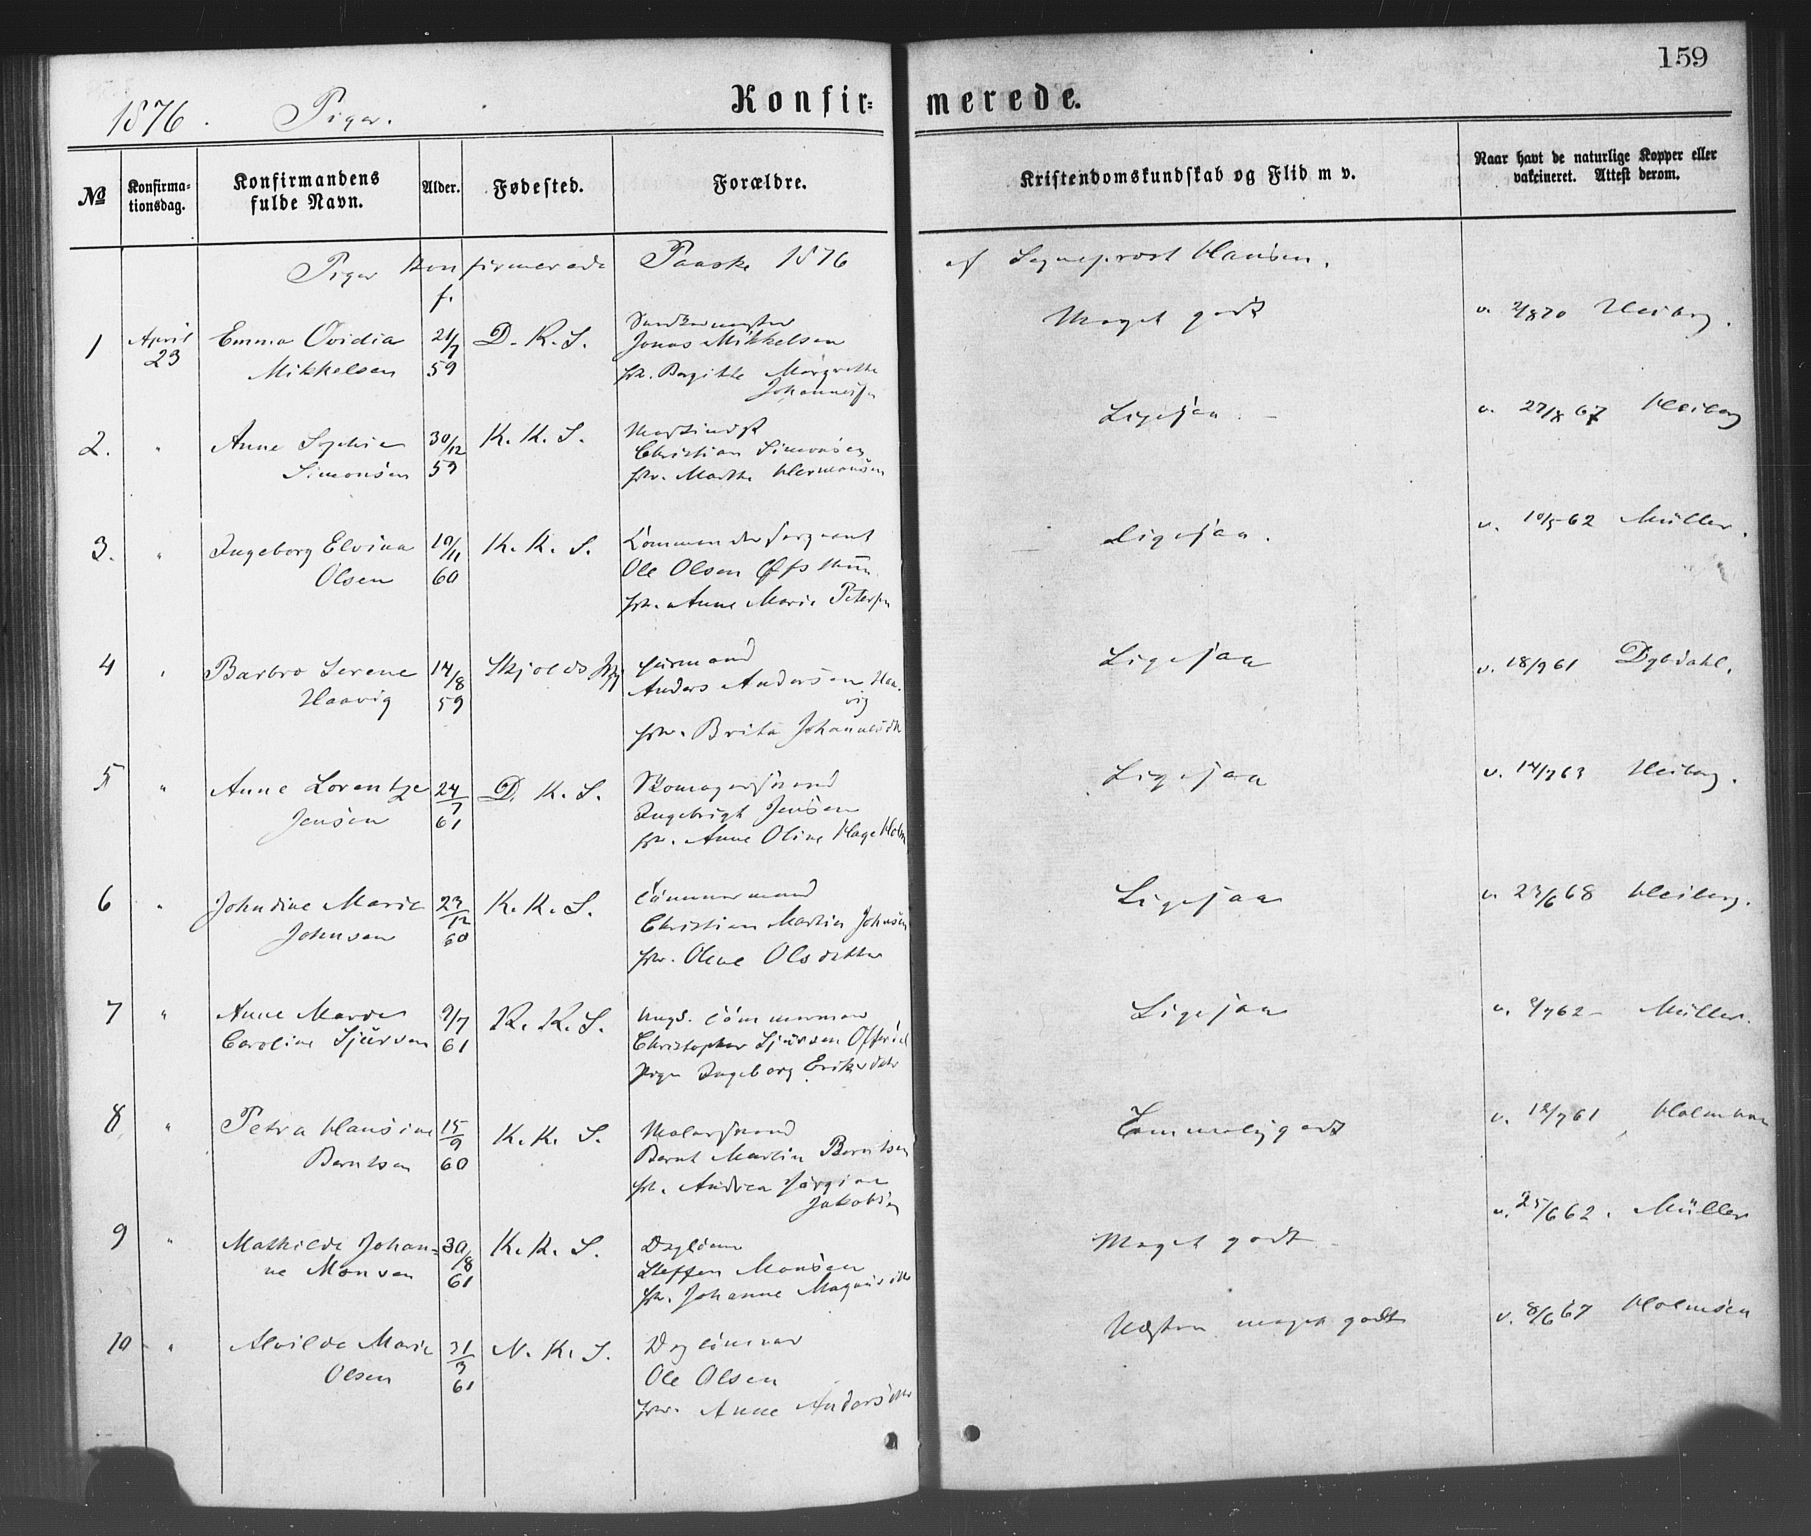 159
1876. Piger.
Konfir= merede.
№
Konfirma-
tionsdag.
Konfirmandens
fulde Navn.
Alder.
Fødested.
Forældre.
Kristendomskundskab og Flid m v.
Naar havt de naturlige Kopper eller
vakcineret. Attest derom.
Piger Konfirmerede Paaske 1876 af Sogneprest Hansen.
f.
1 April 23 Emma Ovidia Mikkelsen 21/7 59 D. K. S.
Jonas Mikkelsen
Bergitte Margrethe
Meget godt
Heiberg.
2. " Anne Sophie Simonsen 30/12 59 K. K. S.
Christian Simonsen
Marthe Hermansen
Ligesaa.
v. 27/8 67 Heiberg
3. " Ingeborg Elvina Olsen 19/11 60 K. K. S.
Ole Olsen
Anne Marie Petersen
Ligesaa.
v. 10/5 62 Müller.
4 " Barbro Serene Haavig 14/8 59
Anders Andersen Haa-
vig
Brita
Ligesaa
v. 18/9 61 Dybdahl.
5 " Anne Lorentze Jensen 24/7 61 D. K. S.
Ingebrigt Jensen
Anne Oline
Ligesaa
v. 14/7 63 Heiberg.
6 " Johndine Marie Johnsen 23/12 60 K. K. S.
Tømmermand
Christian Martin Johnsen
Olene Olsdatter
Ligesaa
v. 23/6 68 Heiberg.
7 " Anne Marie Caroline Sjursen 9/7 61 K. K. S.
Ungk. Tømmermand
Christopher Sjursen
Pige Ingeborg Eriksdatr
Ligesaa
v. 9/7 62 - Müller.
8 " Petra Hansine Berntsen 15/9 60 K. K. S.
Malersvend
Bernt Martin Berntsen
Andrea Jørgine
Jakobsen
Temmelig godt
v. 12/7 61
9 " Mathilde Johan=
ne Monsen 30/8 61 K. K. S.
Steffen Monsen
Johanne
Meget godt
v. 25/6 62. Müller
10 " Alvilde Marie Olsen 31/3 61 N. K. S.
Ole Olsen
Anne
Næsten meget godt
v. 8/6 67 Holmsen